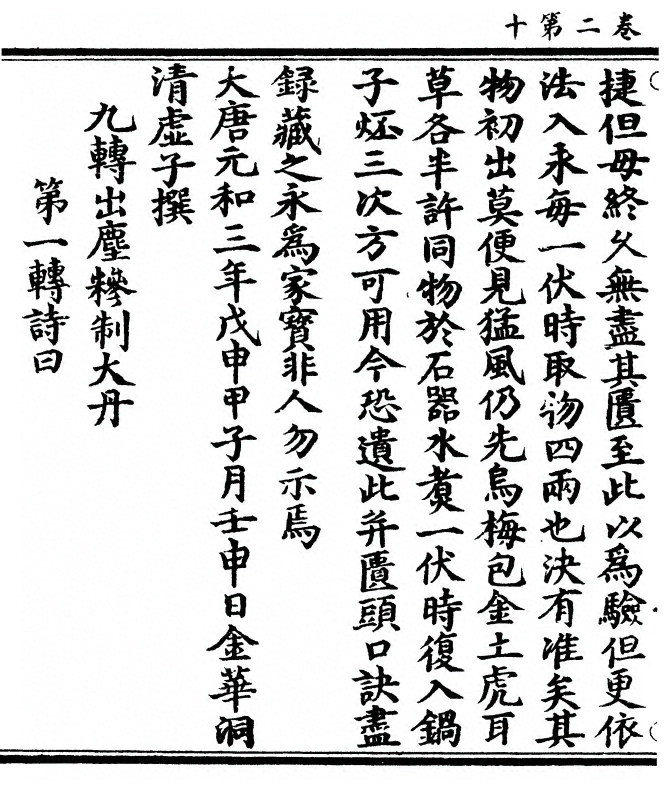 卷二第十
捷但母終久無盡其匱至此以為驗但更依
法入汞每一伏時取物四兩也决有准矣其
物初出莫便見猛風仍先烏梅包金土虎耳
草各半許同物於石器水煑一伏時復入鍋
子炼三次方可用今恐遺此并匱頭口訣盡
録藏之永為家寳非人勿示焉
大唐元和三年戊申甲子月壬申日金華洞
清虛子撰
九轉出塵糝制大丹
第一轉詩曰